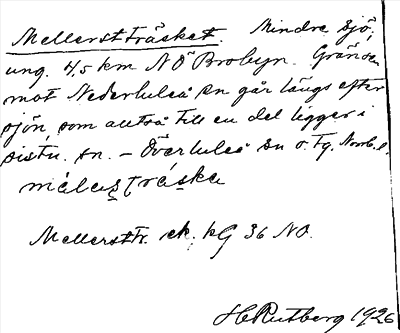 Mellerstträsket. Mindre sjö,
ung. 4,5 km NÖ Brobyn. Gränsen
mot Nederluleå sn går längs efter
sjön, som alltså till en del ligger i
sistn. sn. – Överluleå sn o. Tg. Norrb. l.
Mellersttr. ek. kG 36 NO.
H Rutberg 1926